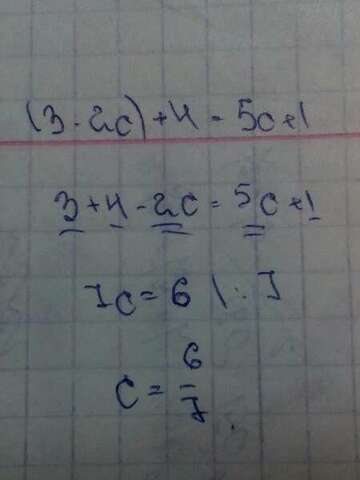 (3-2c)+4=5c+1
3+4-2c=5c+1
7c=6 |:7
c=6/7